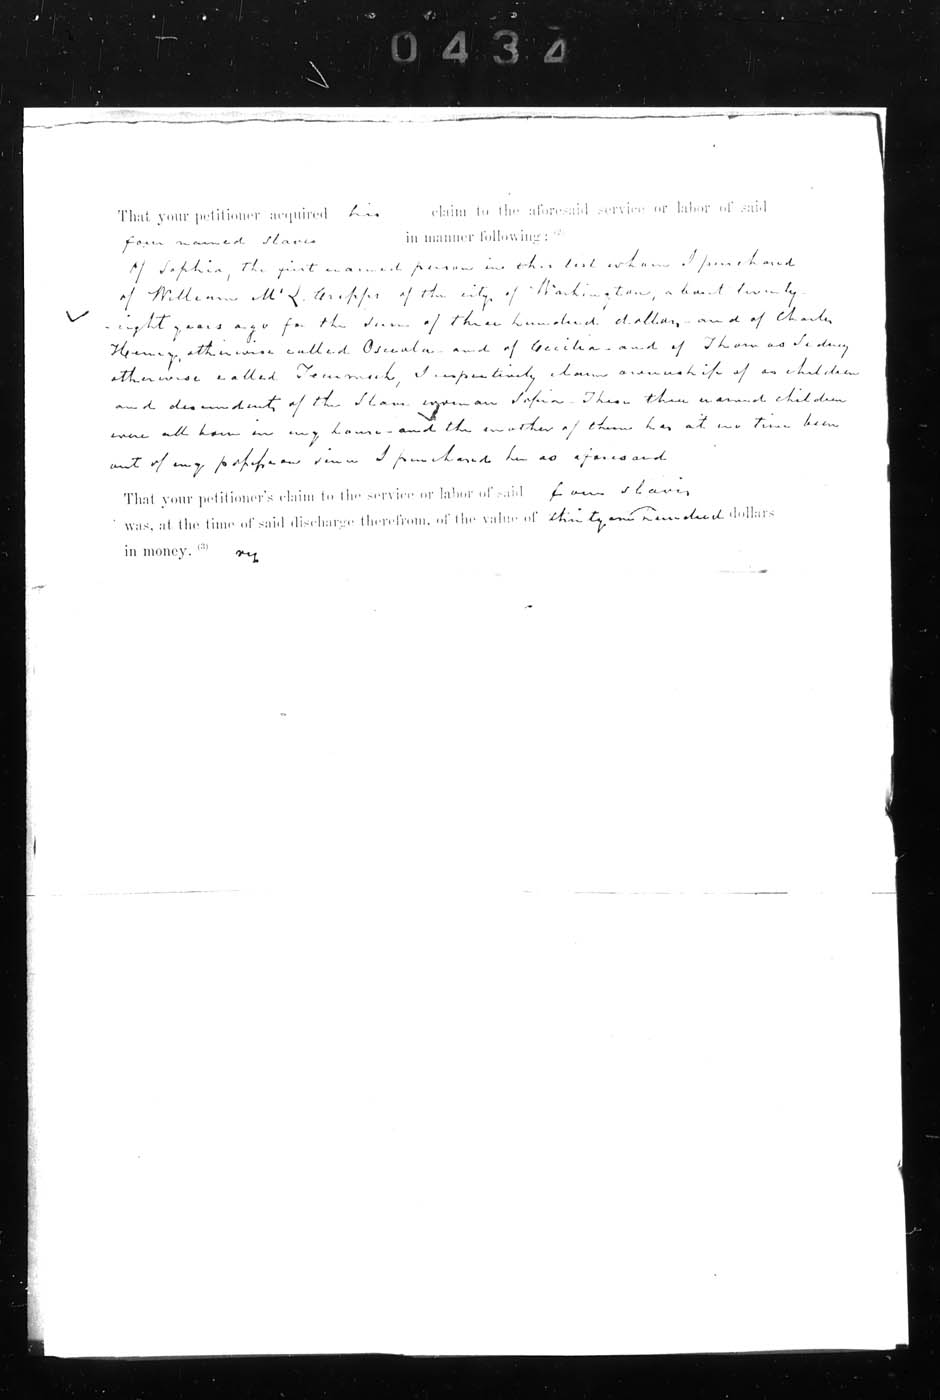 0434
That your petitioner acquired his claim to the aforesaid service or labor of said
four named slaves in manner following: (2)
Of Sophia, the first named person in this list whom I purchased
of William McL. Cripps of the city of Washington, about twenty-
-eight years ago for the sum of three hundred dollars - and of Charles
Henry, otherwise called Osceola - and of Cecilia - and of Thomas Sedney
otherwise called Tecumseh, I respectively claim ownership of as children
and descendents of the Slave woman Sofia - These three named children
were all born in my house - and the mother of them has at no time been
out of my possession since I purchased her as aforesaid
That your petitioner's claim to the service or labor of said four slaves
was, at the time of said discharge therefrom, of the value of thirty one hundred dollars
in money. (3)